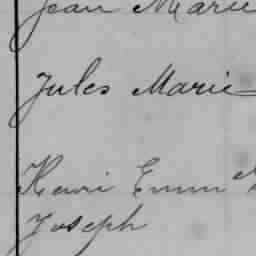 Jean Marie
Jules Marie
Henri Emm
Joseph